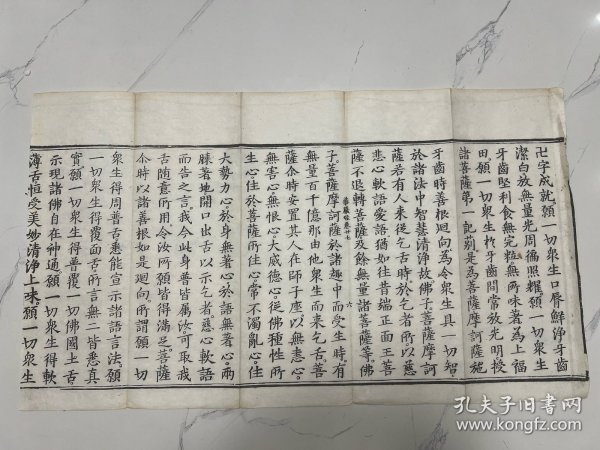 卍字成就願一切衆生口脣鮮淨牙齒
潔白放無量光周徧照耀願一切衆生
牙齒堅利食無完粒無兩味著為上福
田願一切衆生於牙齒間常放光明授
諸菩薩第一記莂是為菩薩摩訶薩施
牙齒時善根迴向為令衆生具一切智
於諸法中智慧清淨故佛子菩薩摩訶
薩若有人來從乞舌時於乞者所以慈
悲心軟語愛語猶如往昔端正面王菩
薩不退轉菩薩及餘無量諸菩薩等佛
華嚴
子菩薩摩訶薩於諸趣中而受生時有
無量百千億那由他衆生而來乞舌菩
薩爾時安置其人在師子座以無恚心
無害心無恨心大威德心從佛種性所
生心住於菩薩所住心常不濁亂心住
大勢力心於身無著心於語無著心兩
膝著地開口出舌以示乞者慈心軟語
而告之言我今此身普皆屬汝可取我
舌隨意所用令汝所願皆得滿足菩薩
爾時以諸善根如是迴向所謂願一切
衆生得周普舌悉能宣示諸語言法願
一切衆生得覆面舌所言無二皆悉真
實願一切衆生得普覆一切佛國土舌
示現諸佛自在神通願一切衆生得軟
薄舌恒受美妙清淨上味願一切衆生
孔夫子旧书网
www.kongfz.com